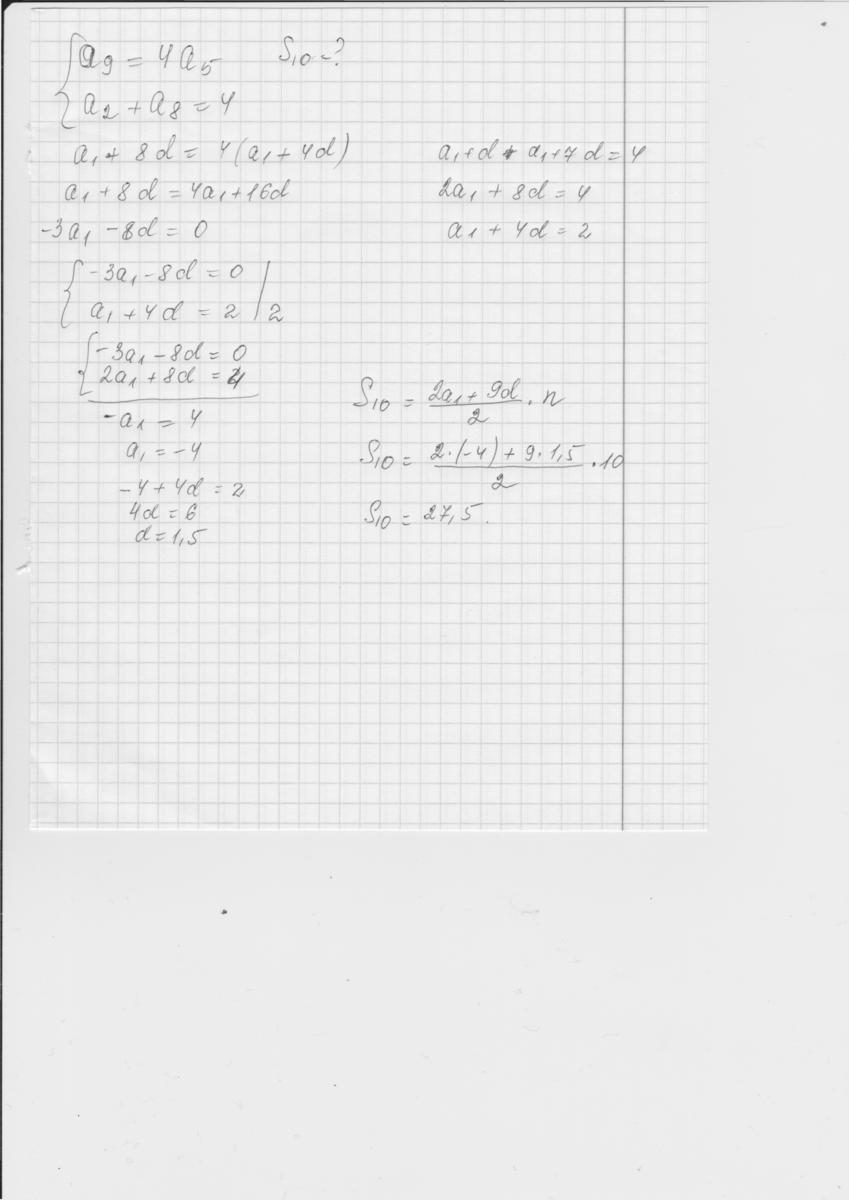 a₉ = 4a₅   S₁₀ - ?
a₂ + a₈ = 4
a₁ + 8d = 4(a₁ + 4d)
a₁ + 8d = 4a₁ + 16d
-3a₁ - 8d = 0
a₁ + d + a₁ + 7d = 4
2a₁ + 8d = 4
a₁ + 4d = 2
-3a₁ - 8d = 0
a₁ + 4d = 2 | 2
-3a₁ - 8d = 0
2a₁ + 8d = 4
-a₁ = 4
a₁ = -4
-4 + 4d = 2
4d = 6
d = 1,5
S₁₀ = (2a₁ + 9d)/2 · n
S₁₀ = (2·(-4) + 9·1,5)/2 · 10
S₁₀ = 27,5.